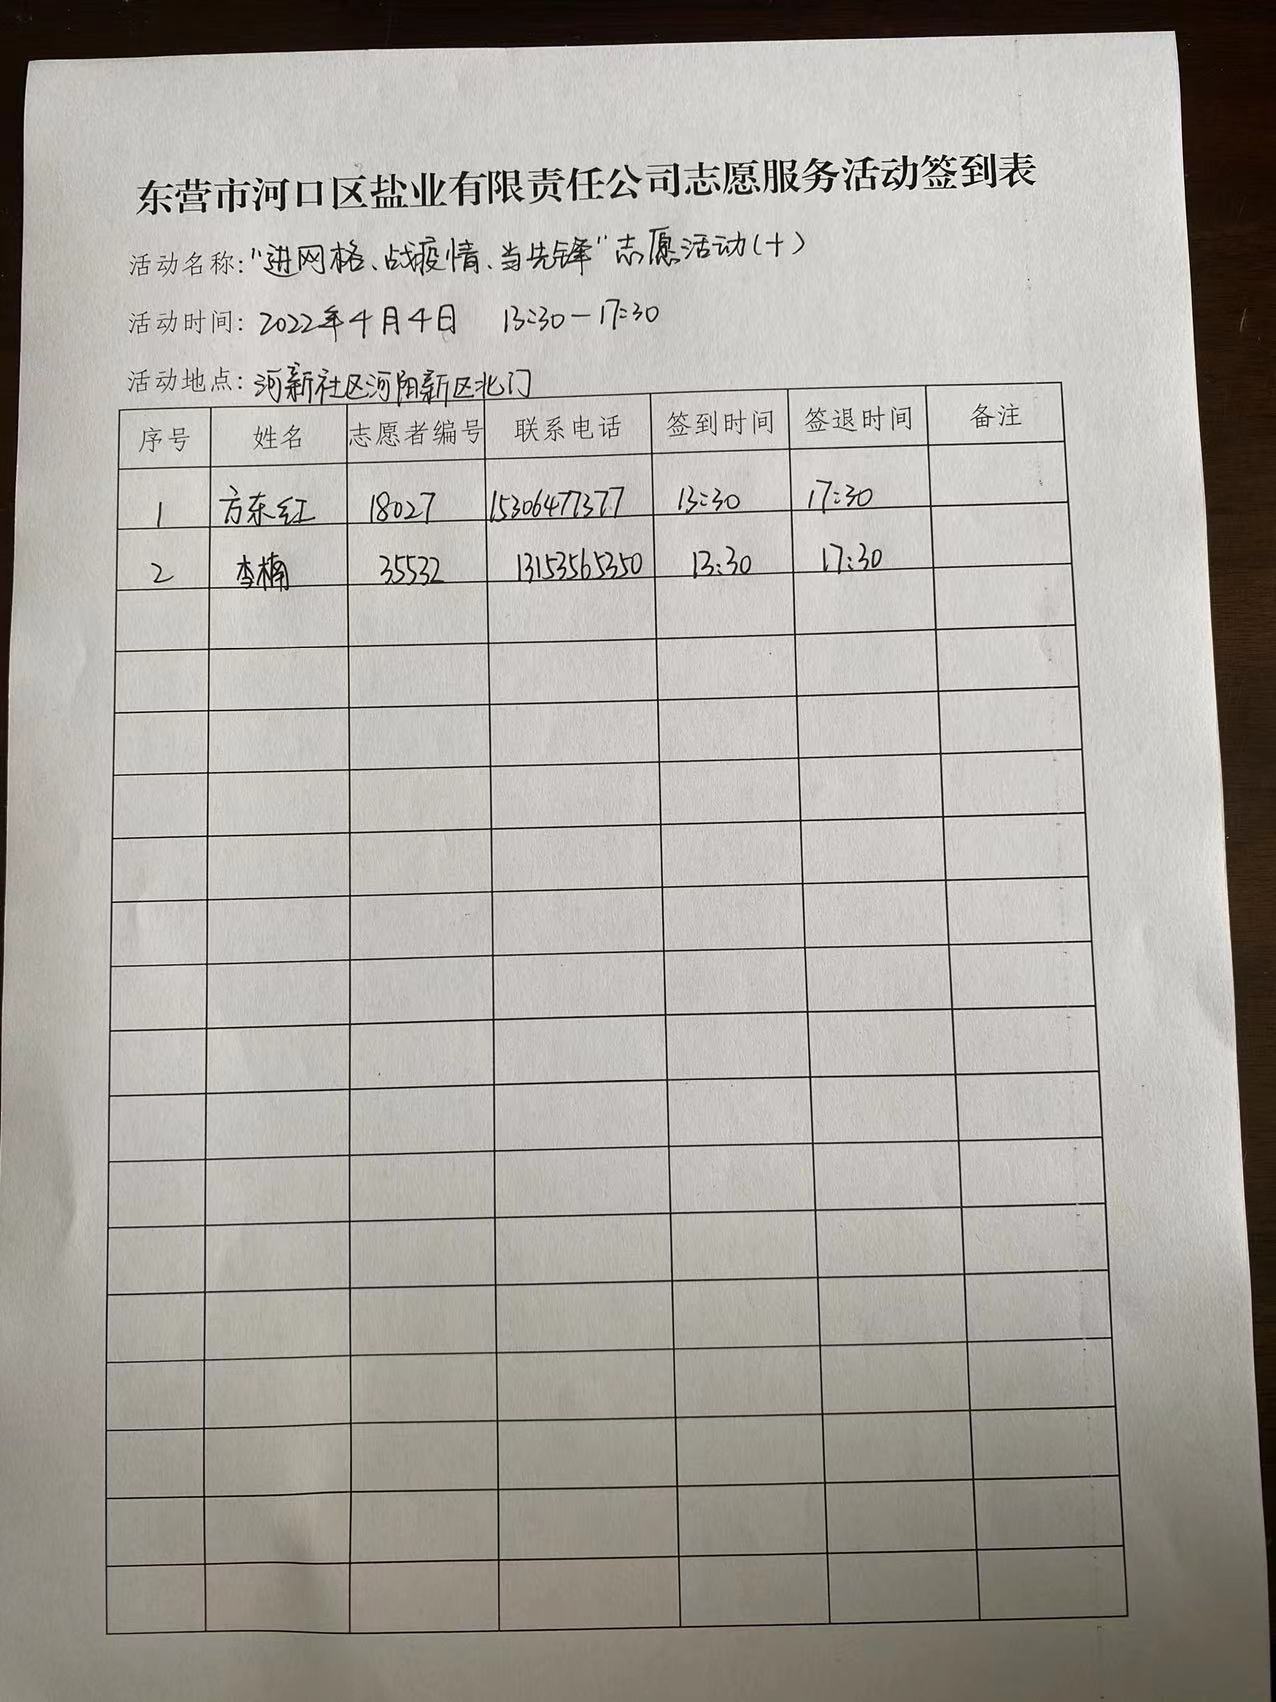 东营市河口区盐业有限责任公司志愿服务活动签到表
活动名称:"进网格、战疫情、当先锋"志愿活动(十)
活动时间: 2022年4月4日 13:30-17:30
活动地点: 河新社区河阳新区北门
序号 姓名 志愿者编号 联系电话 签到时间 签退时间 备注
1 方东红 18027 15306477377 13:30 17:30
2 李楠 35532 13153565350 13:30 17:30